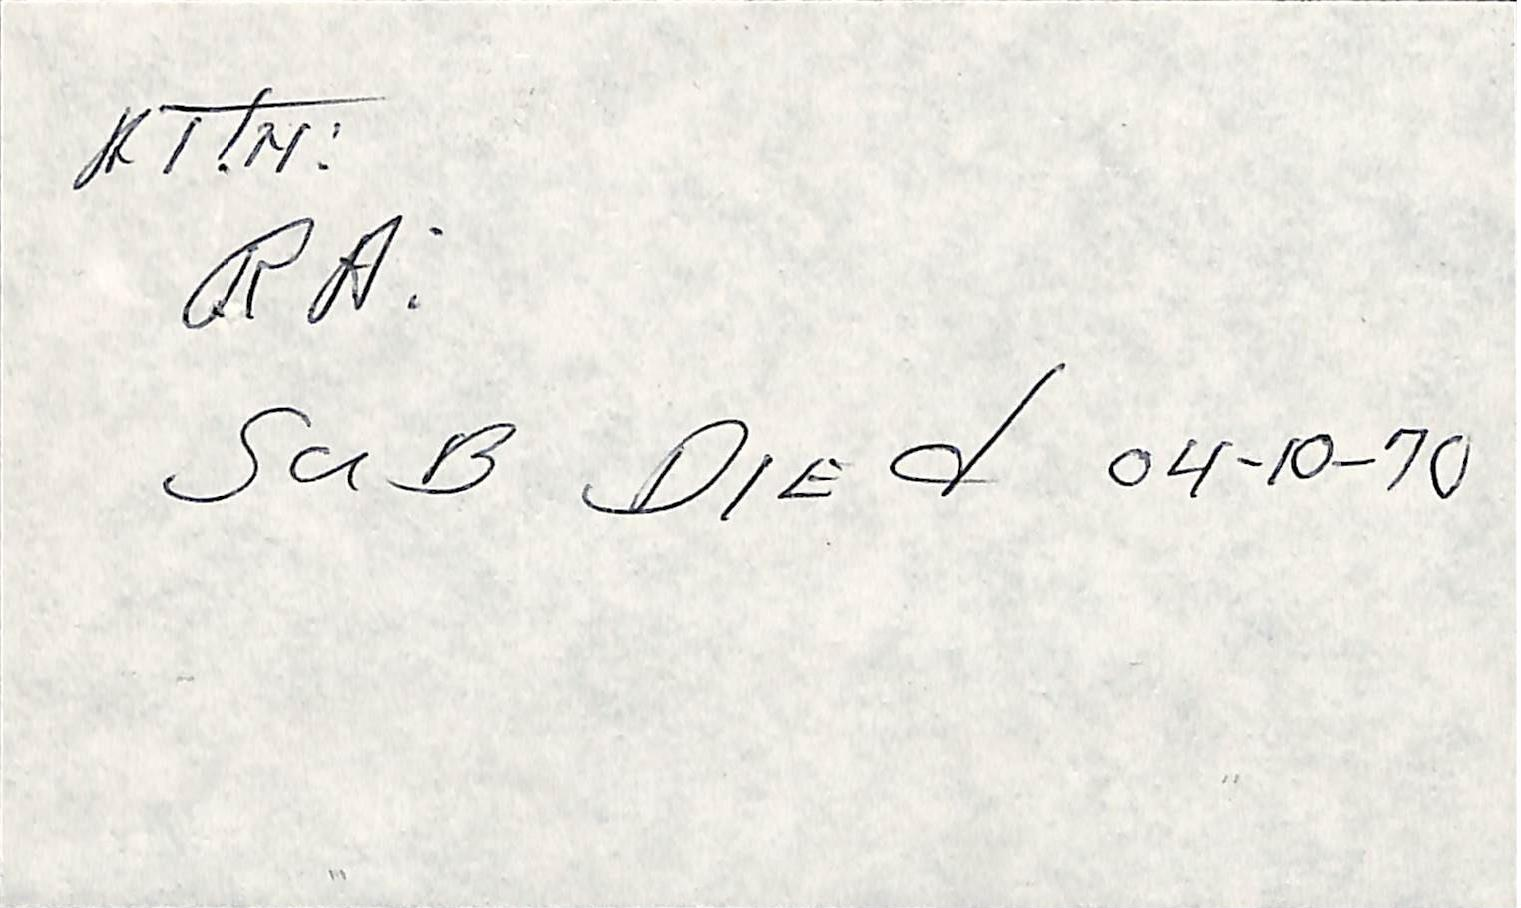 ATTN:
RA:
SUB DIEd 04-10-70